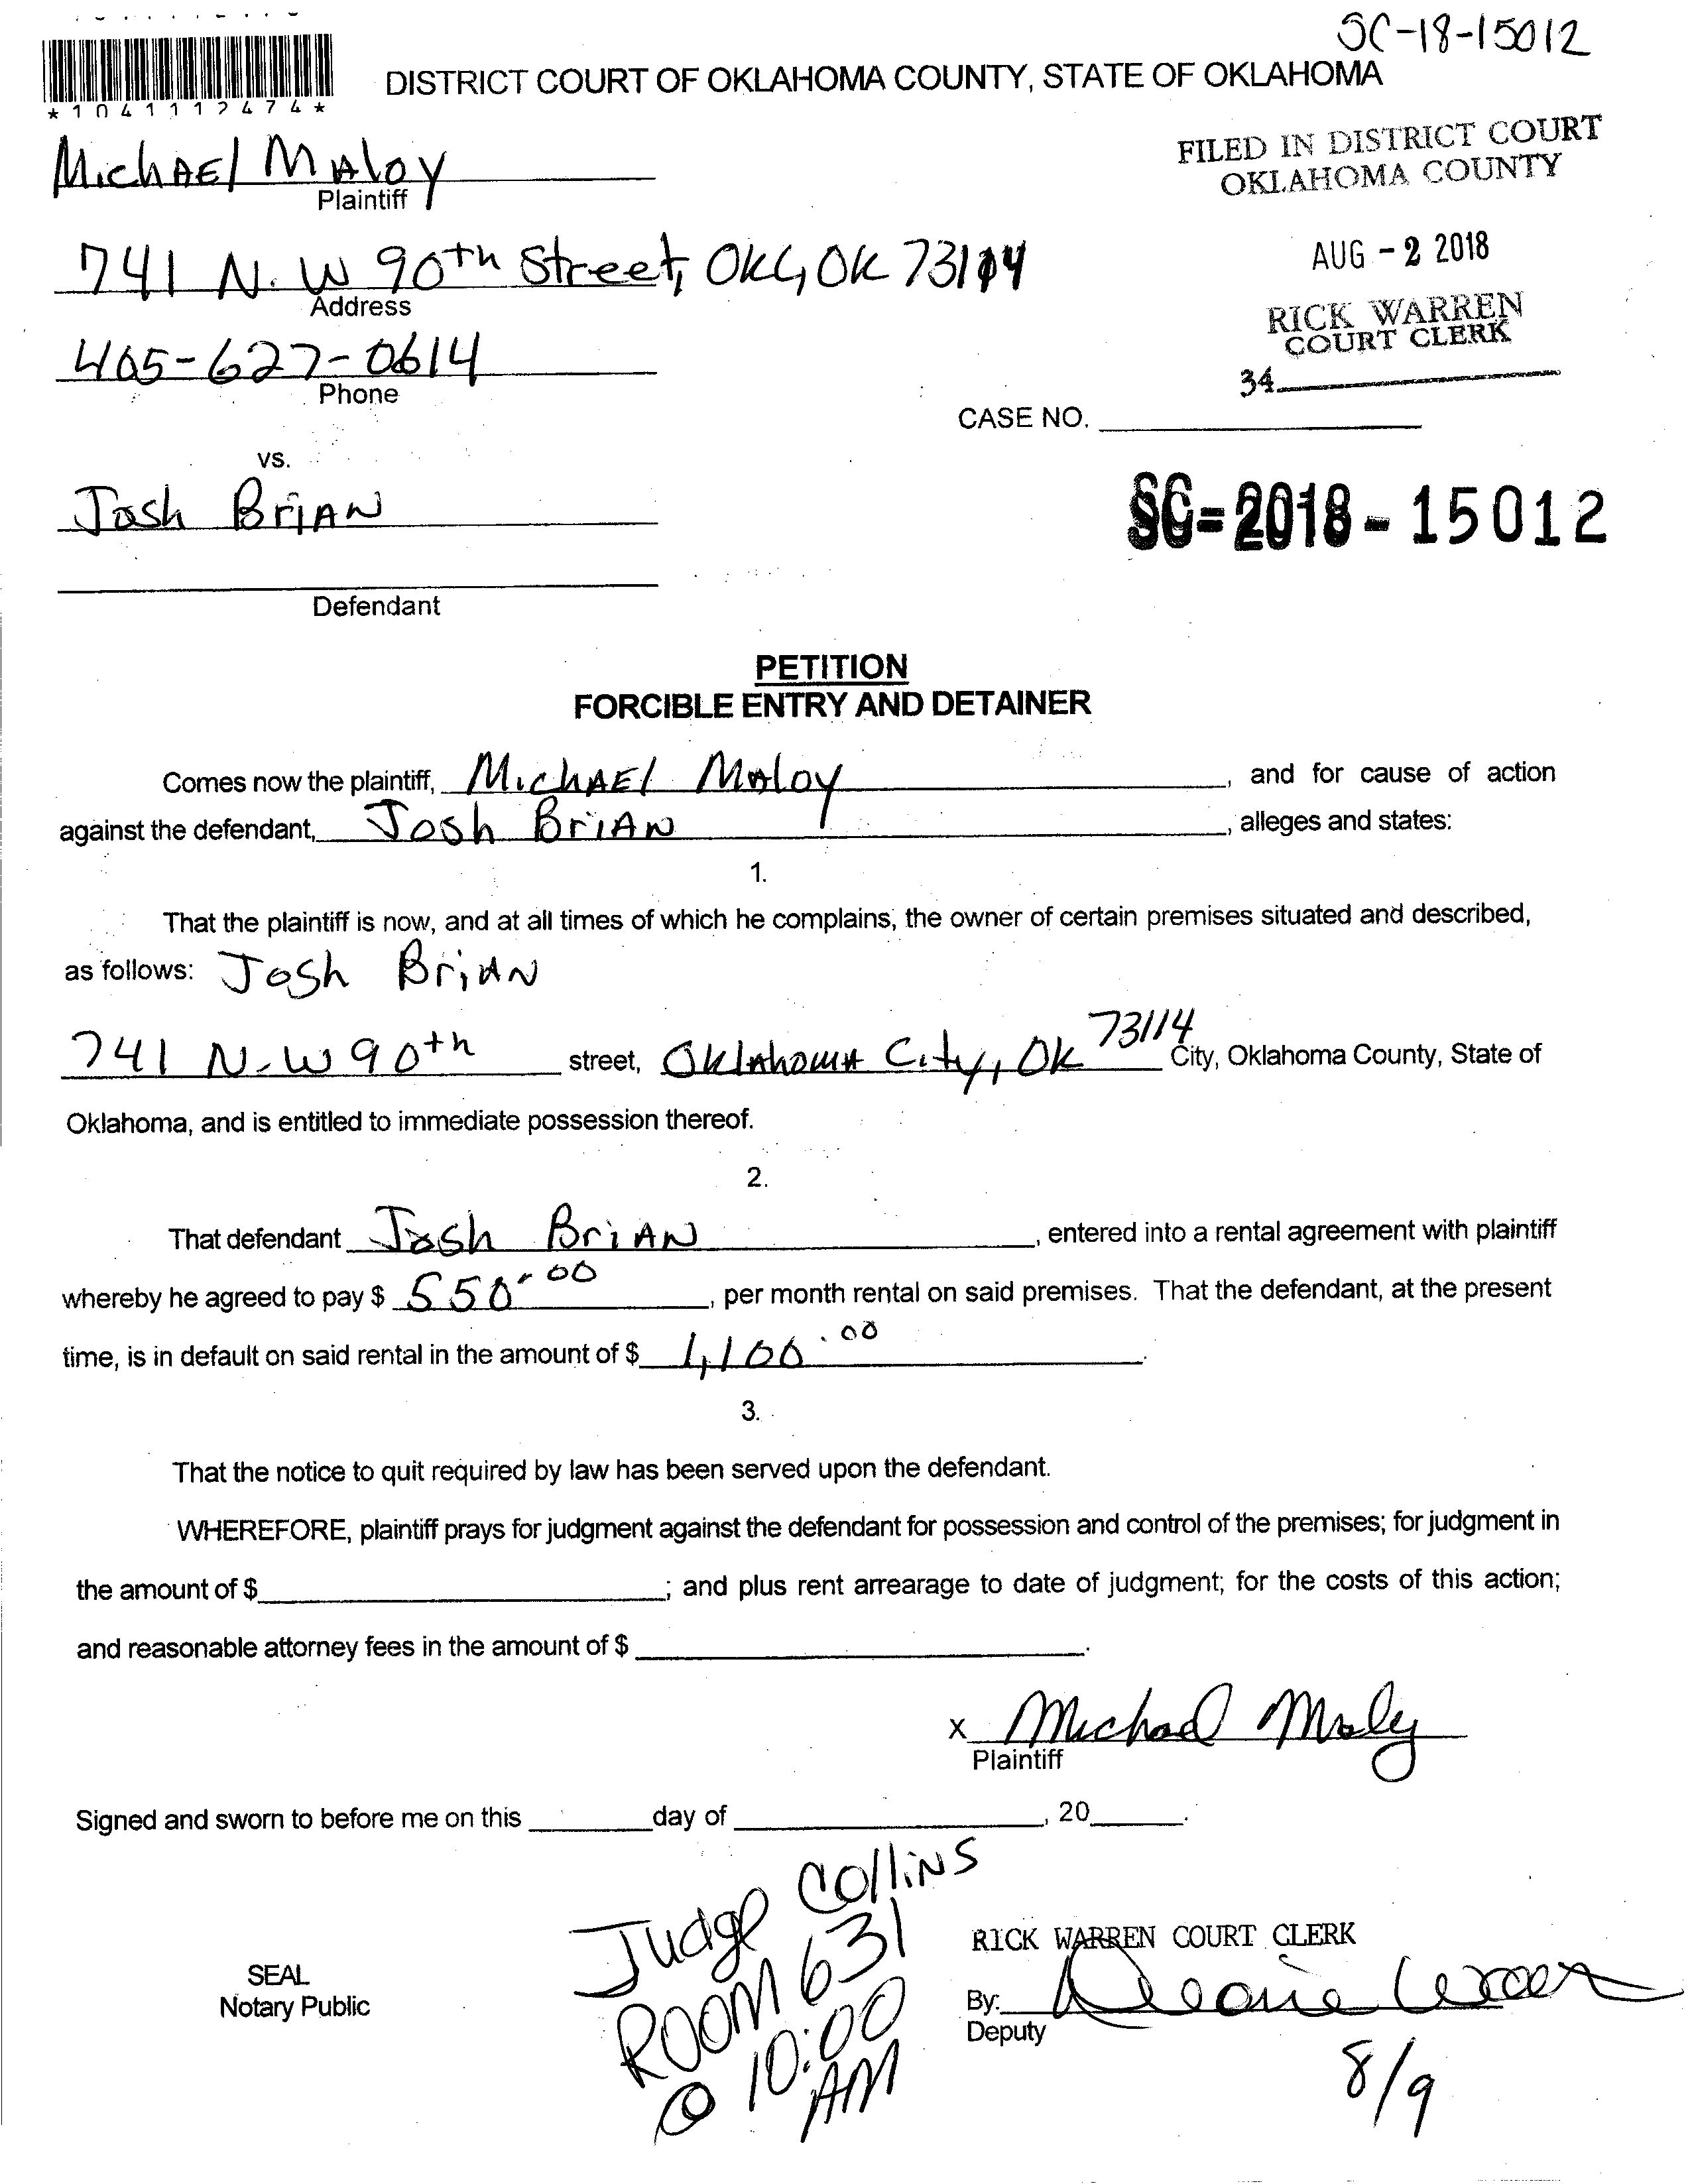 SC-18-15012
*1041112474*
DISTRICT COURT OF OKLAHOMA COUNTY, STATE OF OKLAHOMA
Michael Maloy
Plaintiff
FILED IN DISTRICT COURT
OKLAHOMA COUNTY
741 N.W 90th Street, OKC, OK 73114
Address
AUG - 2 2018
RICK WARREN
COURT CLERK
405-627-0614
Phone
34
CASE NO.
vs.
Josh Brian
SC-2018-15012
Defendant
PETITION
FORCIBLE ENTRY AND DETAINER
Comes now the plaintiff, Michael Maloy, and for cause of action
against the defendant, Josh Brian, alleges and states:
1.
That the plaintiff is now, and at all times of which he complains, the owner of certain premises situated and described,
as follows: Josh Brian
741 N.W 90th street, Oklahoma City, OK 73114 City, Oklahoma County, State of
Oklahoma, and is entitled to immediate possession thereof.
2.
That defendant Josh Brian, entered into a rental agreement with plaintiff
whereby he agreed to pay $ 550.00, per month rental on said premises. That the defendant, at the present
time, is in default on said rental in the amount of $ 1,100.00.
3.
That the notice to quit required by law has been served upon the defendant.
WHEREFORE, plaintiff prays for judgment against the defendant for possession and control of the premises; for judgment in
the amount of $ ; and plus rent arrearage to date of judgment; for the costs of this action;
and reasonable attorney fees in the amount of $ .
X Michael Maloy
Plaintiff
Signed and sworn to before me on this day of , 20 .
Judge Collins
Room 631
@ 10:00
AM
SEAL
Notary Public
RICK WARREN COURT CLERK
By:
Deputy
8/9